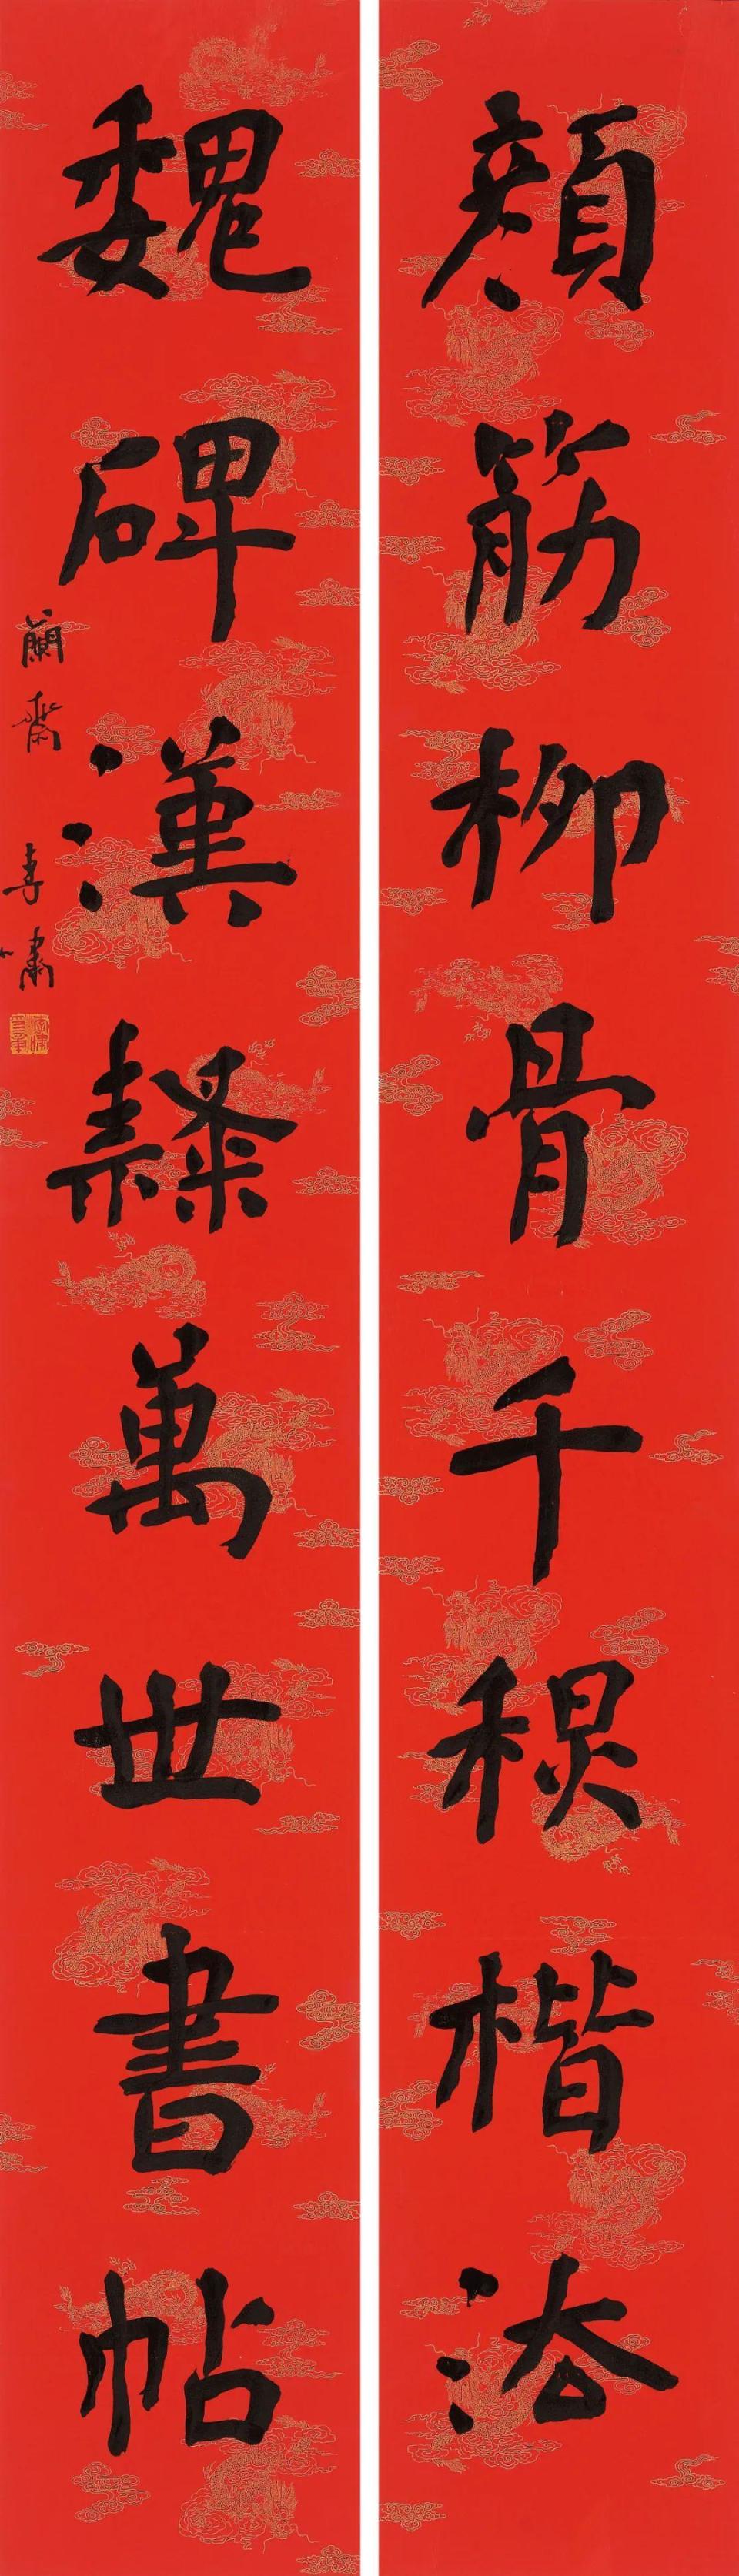 顔筋柳骨千楷法
魏碑漢隸萬世書帖
蘭齋 李嘯